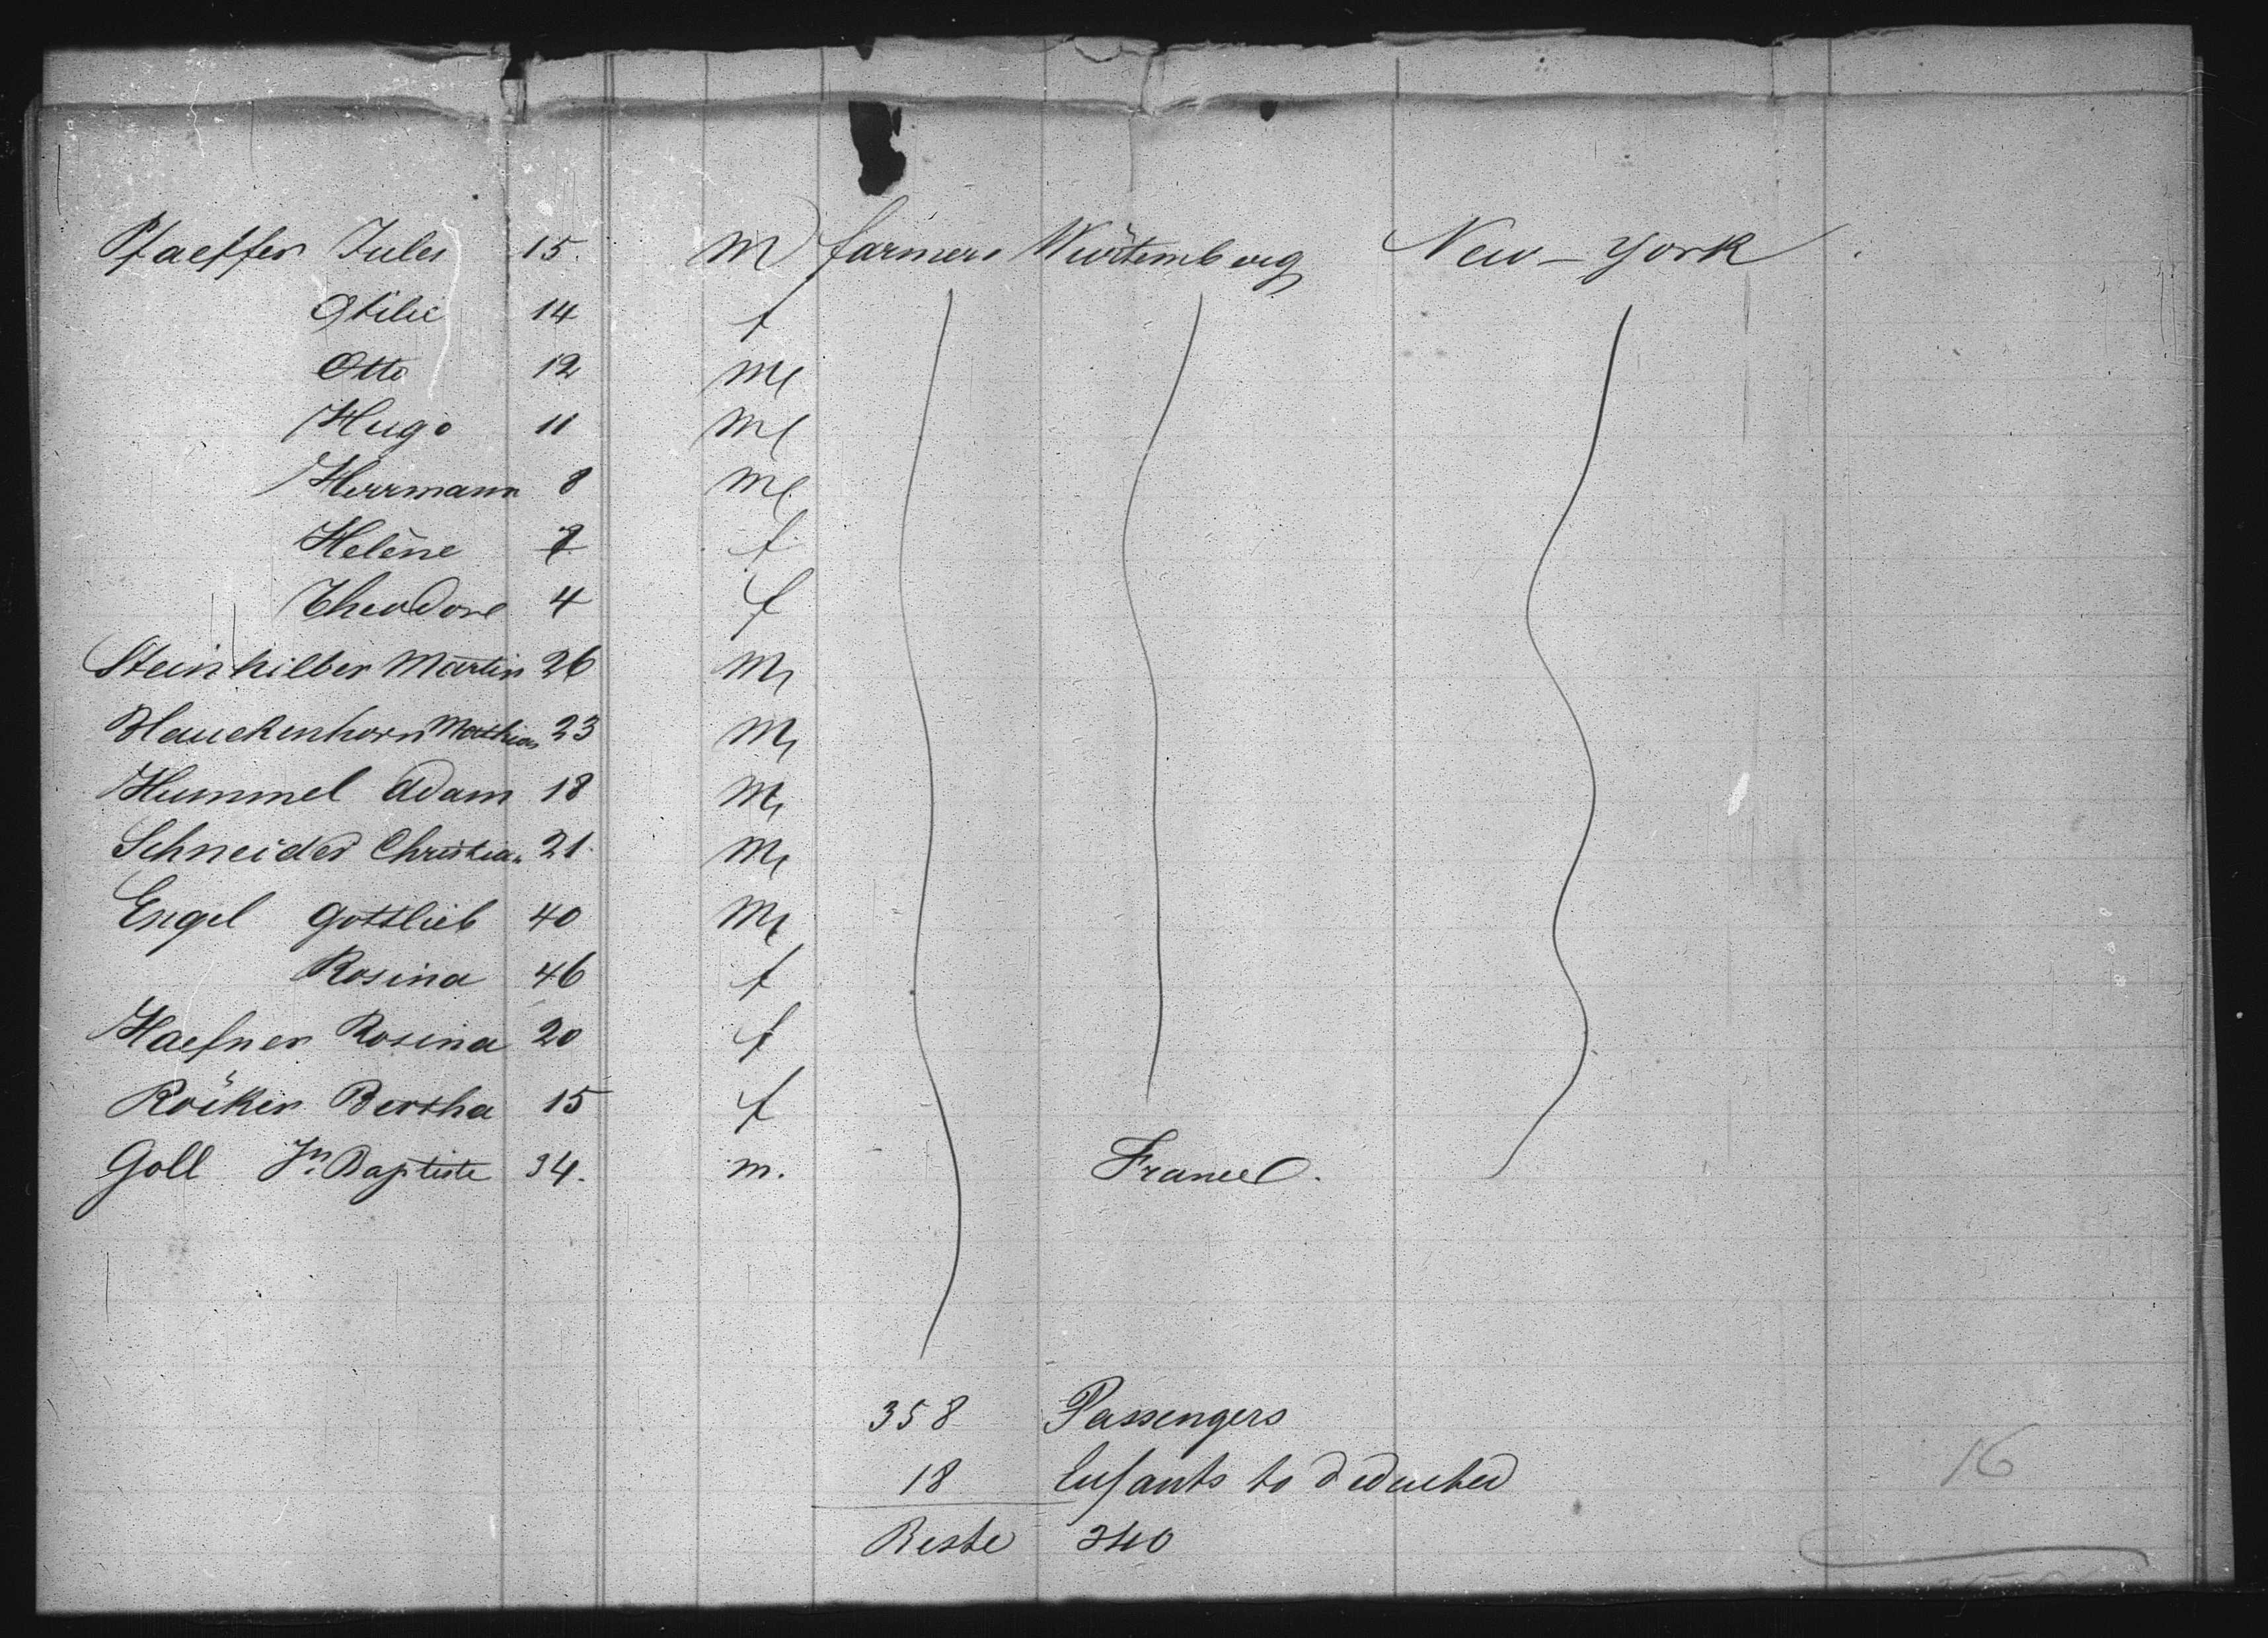 Pfaeffer Jules 15. M farmers Würtemberg New-York
Otilie 14 f
Otto 12 M
Hugo 11 M
Herrmann 8 M
Helène 7 f
Theodore 4 f
Steinhilber Martin 26 M
Blanckenhorn Mathias 23 M
Hummel Adam 18 M
Schneider Christian 21. M
Engel Gottlieb 40 M
Rosina 46 f
Haefner Rosina 20 f
Röcker Bertha 15 f
Goll Jn. Baptiste 34. m. France.
358 Passengers
18 Enfants to deducted
Reste 340
16